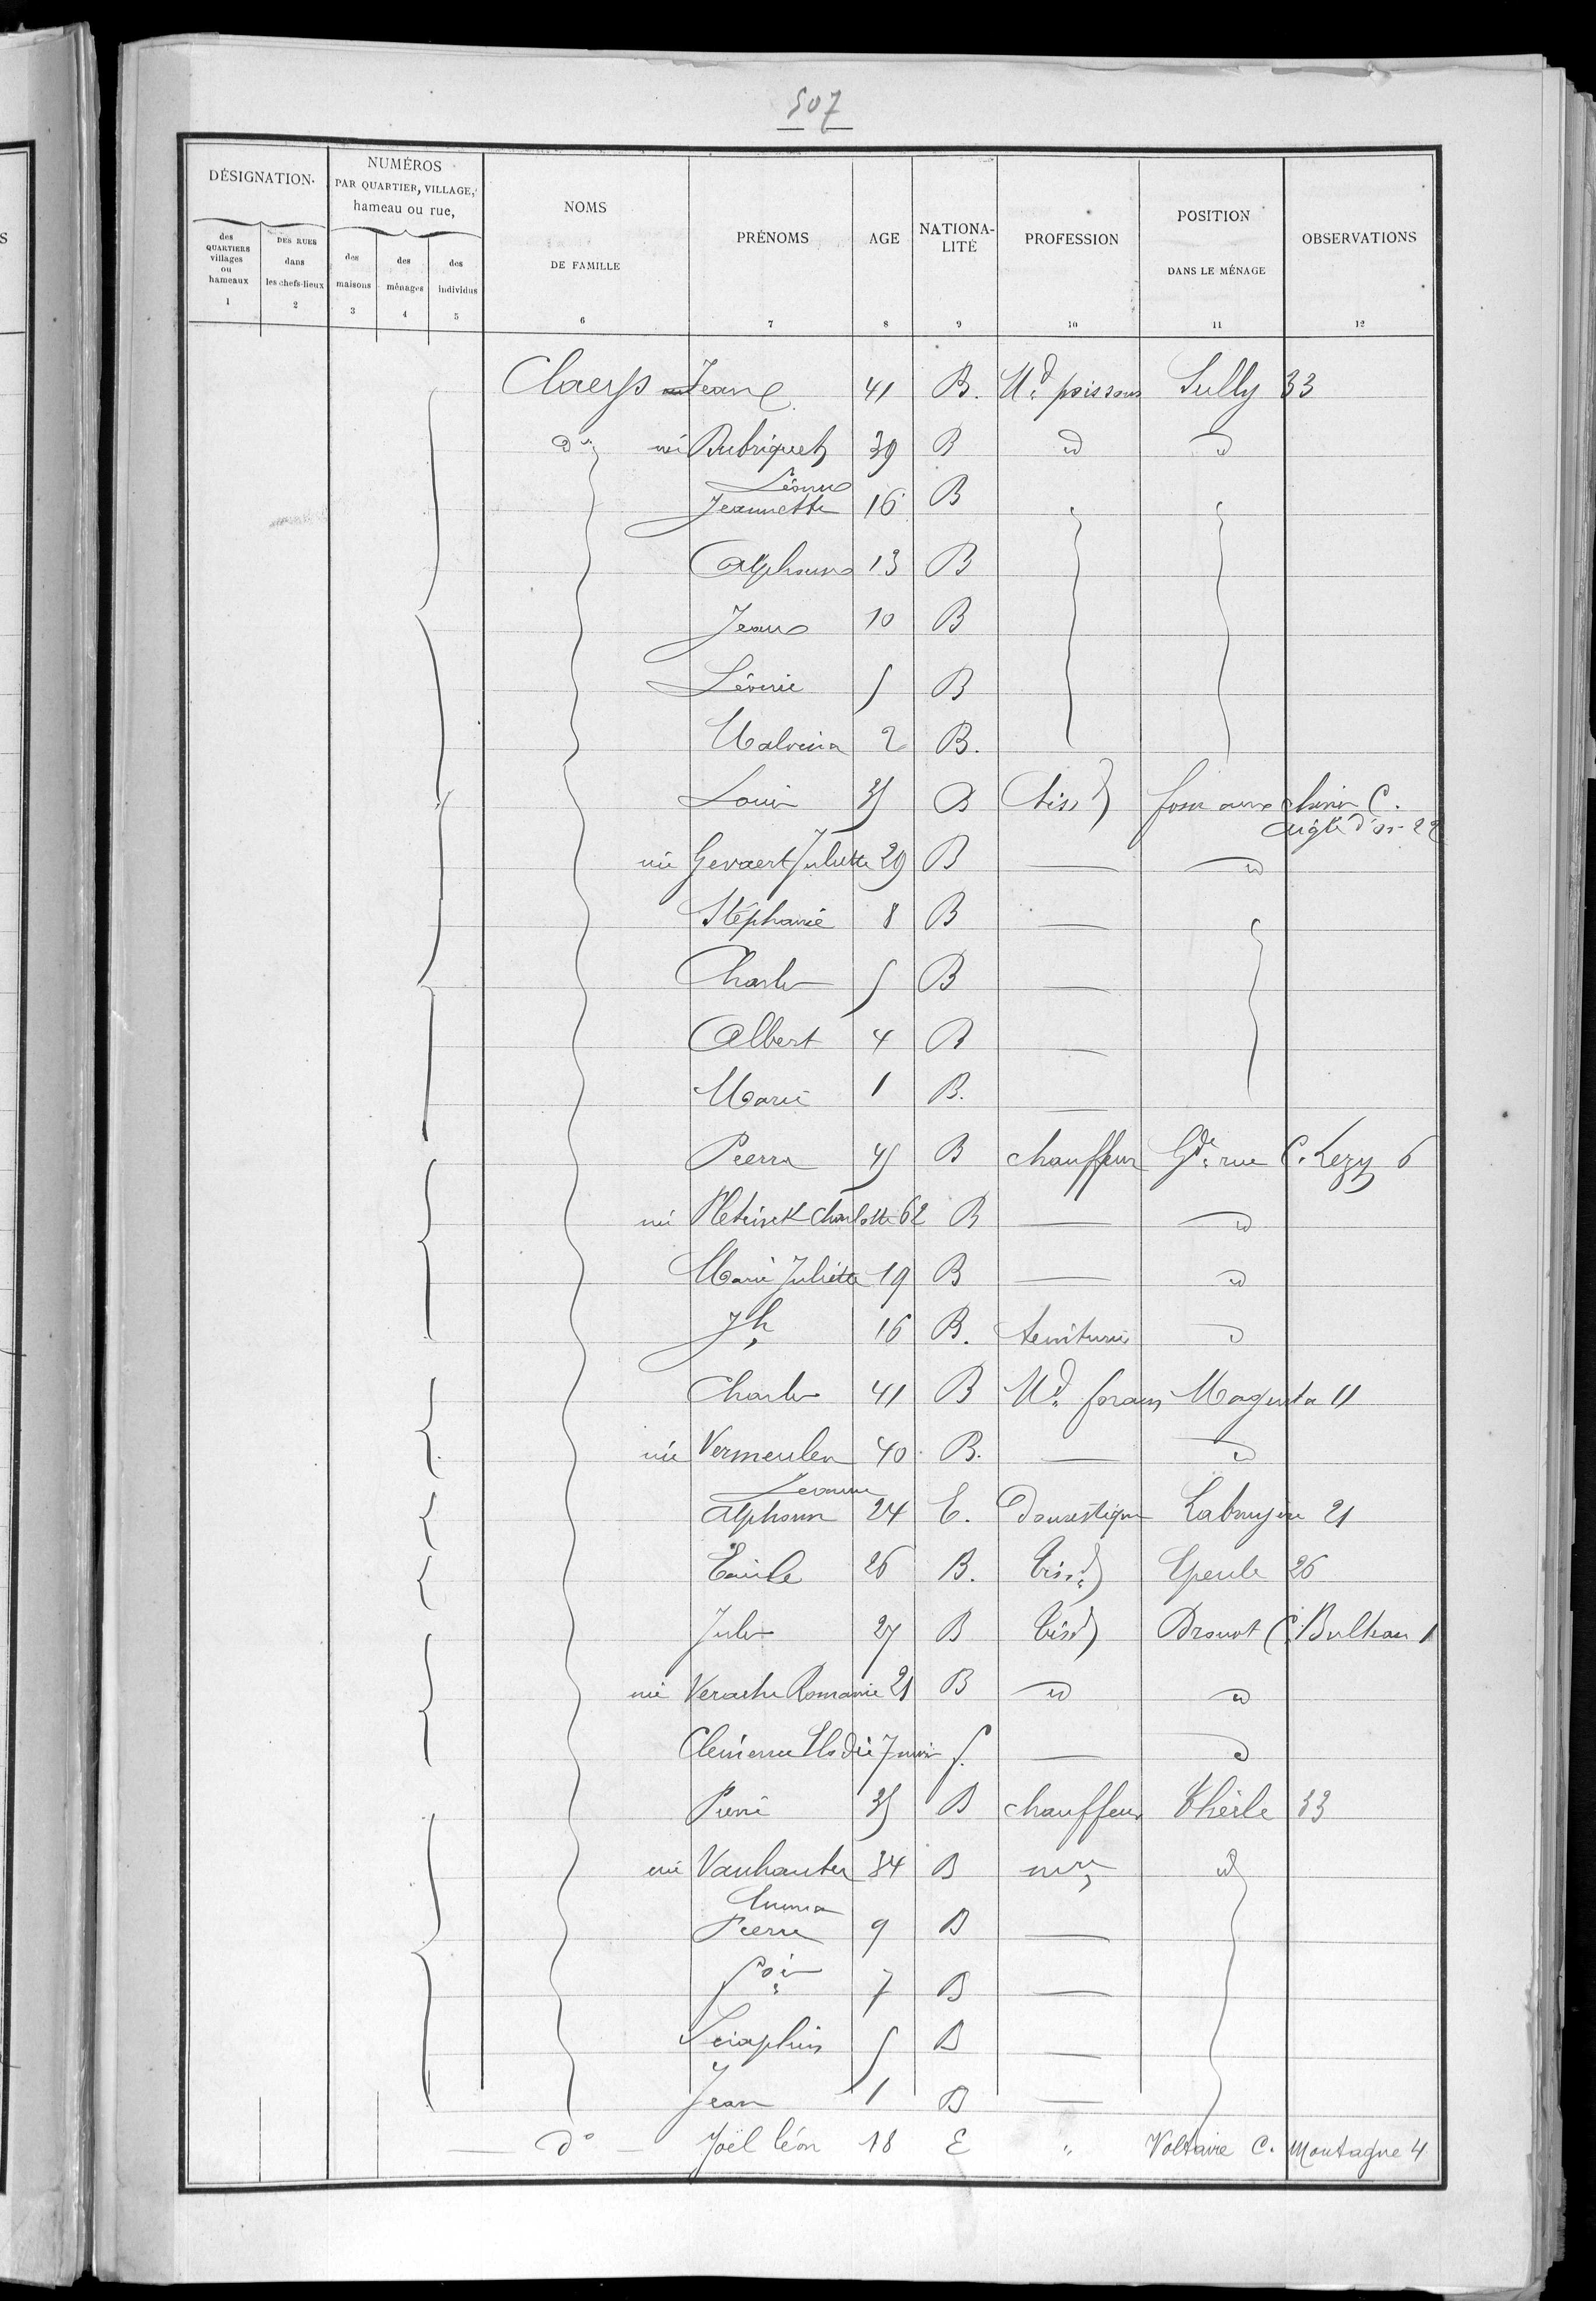 507
DÉSIGNATION
NUMÉROS
PAR QUARTIER, VILLAGE,
hameau ou rue,
NOMS
DE FAMILLE
PRÉNOMS
AGE
NATIONA-
LITÉ
PROFESSION
POSITION
DANS LE MÉNAGE
OBSERVATIONS
des QUARTIERS villages ou hameaux
DES RUES dans les chefs-lieux
des maisons
des ménages
des individus
1 2 3 4 5 6 7 8 9 10 11 12
Jean 41 B. Md poissons Sully 33
né Dubriquet 39 B d d
Jeannette 16 B
Alphonse 13 B
Jean 10 B
Léonie 5 B
Malvina 2 B.
Louis 35 B tisd foss aux chênes C.
aigle d'or 22
née Gevaert Juliette 29 B — d
Stéphanie 8 B —
Charles 5 B —
Albert 4 B —
Marie 1 B. —
Pierre 45 B chauffeur Gde rue C. Lezy 6
née Charlotte 62 B — d
Marie Juliette 19 B — d
Jh 16 B. teinturier d
Charles 41 B Md forain Magenta 11
née Vermeulen 40 B. — d
Alphonse 24 E. Domestique Labruyère 21
Emile 26 B. tisd Epeule 26
Jules 27 B tisd Drouot C. Bulteau 1
née Romanie 21 B d d
Clémence Elodie 7 mois f. — d
Pierre 35 B chauffeur 33
née Vanhauter 34 B mre d
Emma
Pierre 9 B —
fois 7 B —
Séraphin 5 B —
Jean 1 B —
— do — Joël léon 18 E " Voltaire C. Montagne 4